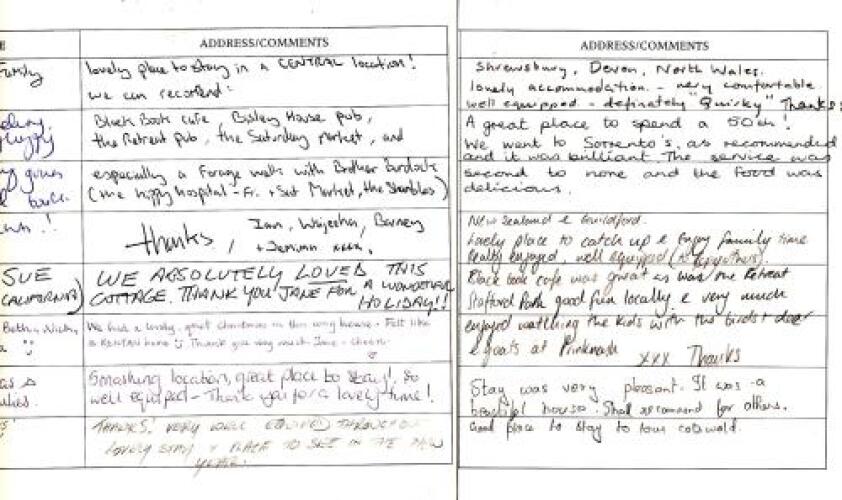 E
ADDRESS/COMMENTS
Family
lovely place to stay in a CENTRAL location!
we can recommend:
Black Book cafe, Bisley House pub,
the Retreat pub, the Saturday market, and
especially a Forage walk with Brother Burdock
(the hippy hospital - Fri. + Sat Market, the Shambles)
Thanks, Iann, Barney
+ Jemima xxxx.
SUE
CALIFORNIA)
WE ABSOLUTELY LOVED THIS
COTTAGE. THANK YOU JANE FOR A WONDERFUL
HOLIDAY!!
Beth, Nicky,
We had a lovely, great Christmas in this house. Felt like
a home Thank you very much Jane
Smashing location, great place to stay! So
well equiped - Thank you for a lovely time!
THANKS! VERY WELL THROUGHOUT
LOVELY STAY + PLACE TO SEE IN THE NEW
YEAR.
ADDRESS/COMMENTS
Shrewsbury, Devon, North Wales.
lovely accommodation - very comfortable
well equipped - definately "Quirky" Thanks
A great place to spend a 50th!
We went to Sorrento's, as recommended
and it was brilliant. The service was
second to none and the food was
delicious.
New Zealand & Guildford.
Lovely place to catch up & enjoy family time
Really enjoyed, well equipped
Black book cafe was great as was the Retreat
Stafford Park good fun locally & very much
enjoyed watching the kids with the birds + deer
& goats at Prinknash xxx Thanks
Stay was very pleasant. It was a
beautiful house. Shall recommend for others.
Good place to stay to tour cotswold.